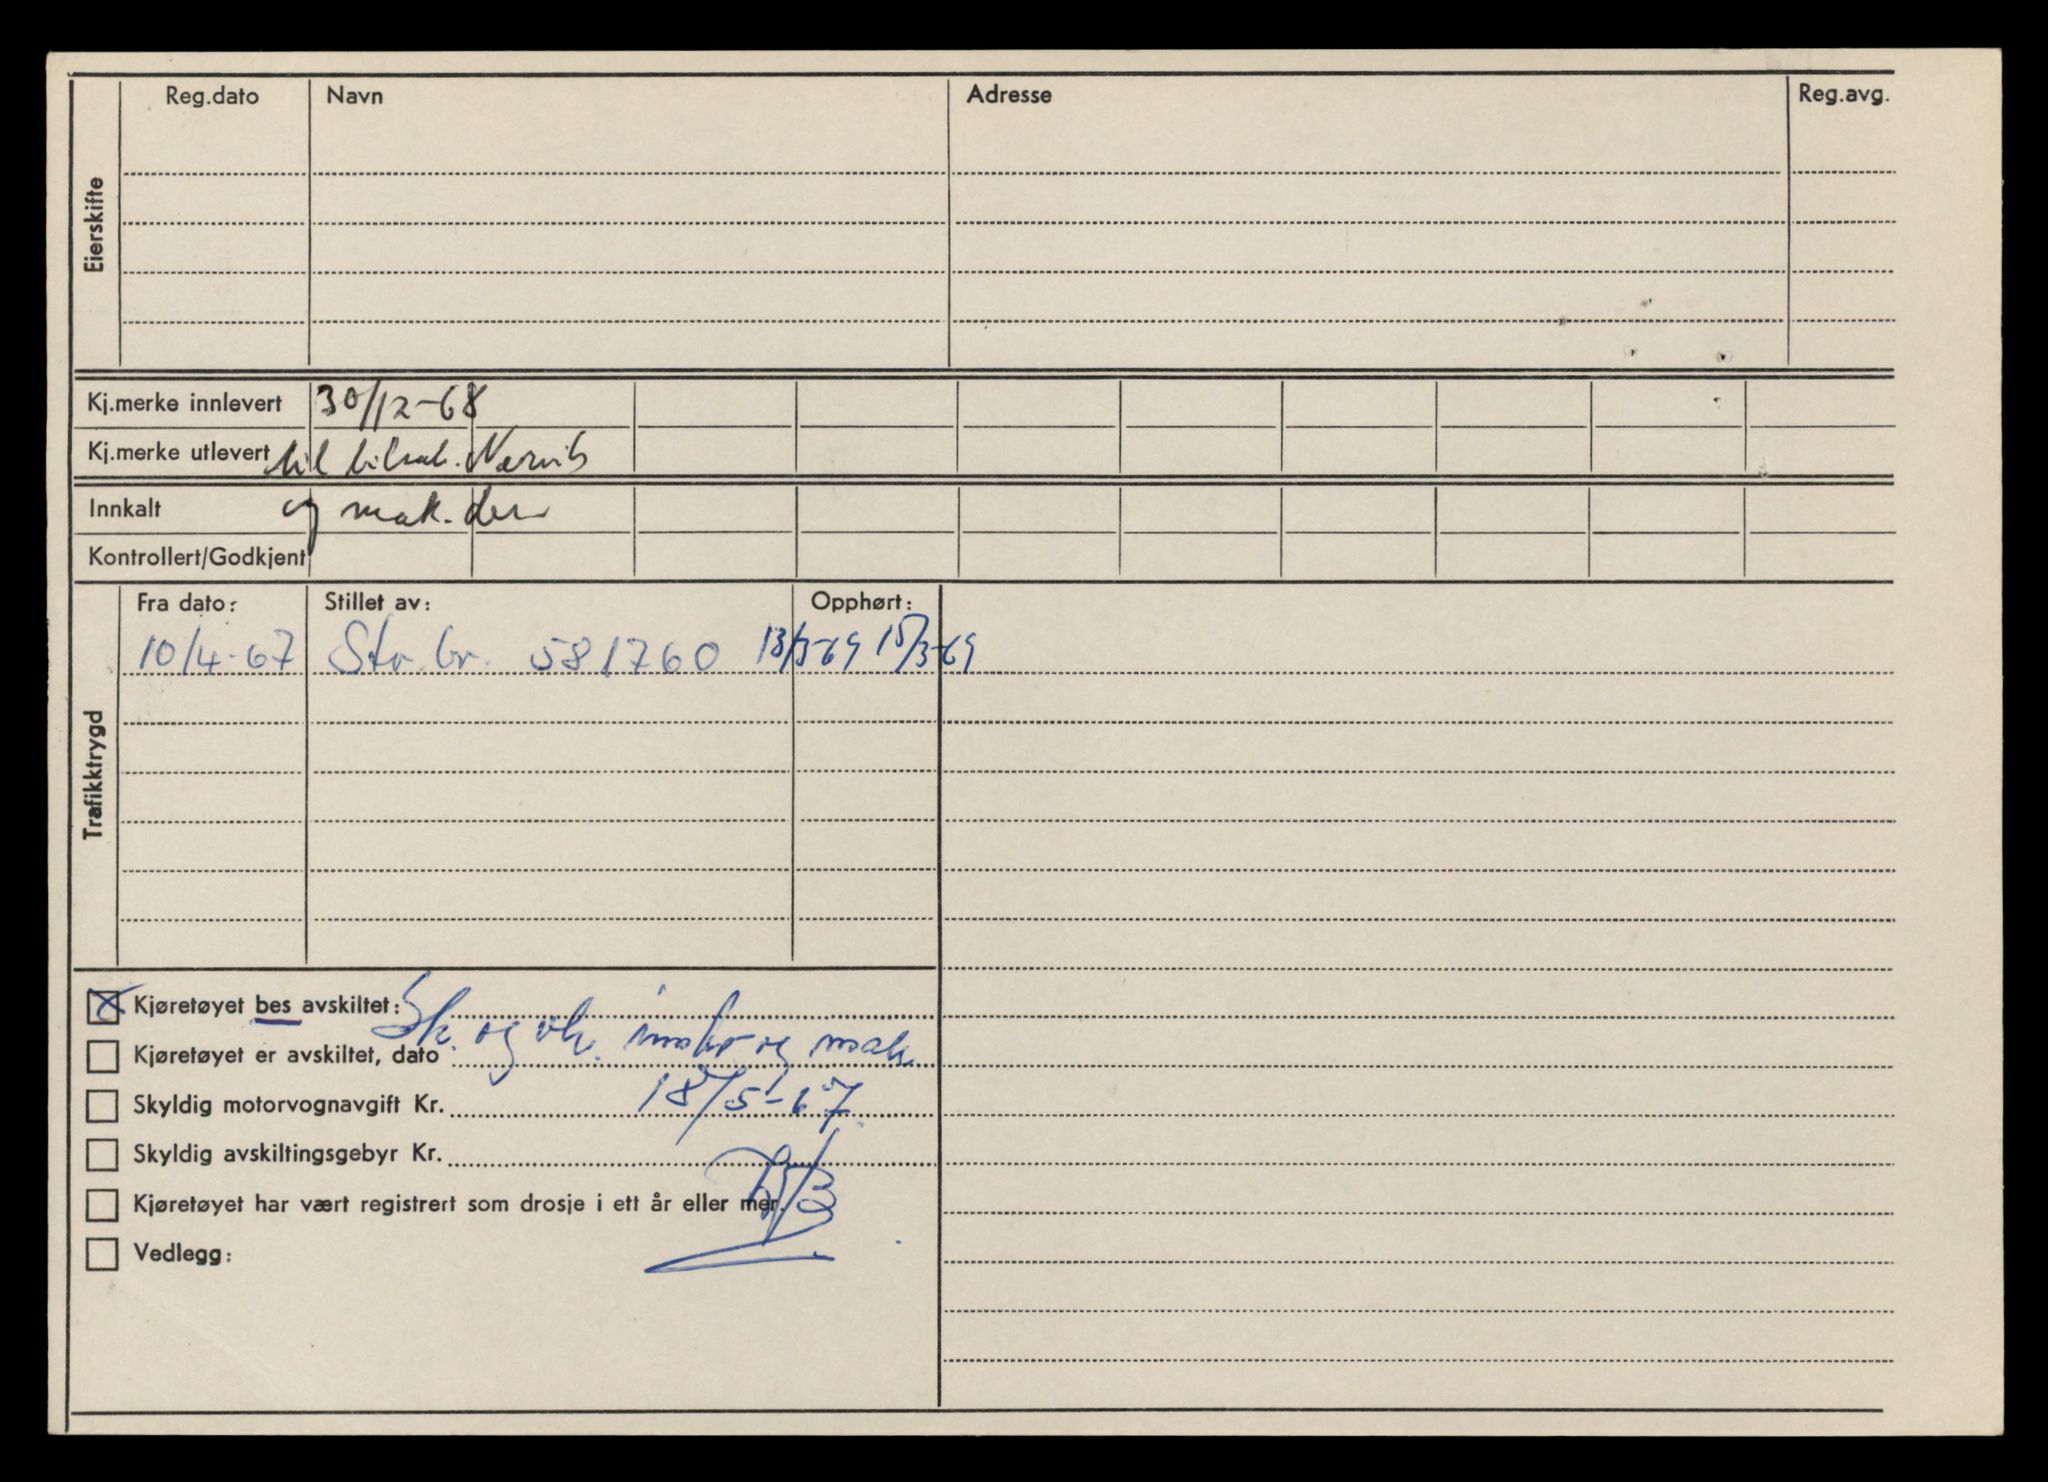 Reg.dato Navn Adresse Reg.avg.
Eierskifte
Kj.merke innlevert 30/12-68
Kj.merke utlevert til bilsak. Narvik
Innkalt og mak. der
Kontrollert/Godkjent
Trafikktrygd
Fra dato: Stillet av: Opphørt:
10/4-67 Str. br. 581760 13/3-69 15/3-69
Kjøretøyet bes avskiltet: Sk. og vk.
Kjøretøyet er avskiltet, dato og mak.
Skyldig motorvognavgift Kr. 18/5-67
Skyldig avskiltingsgebyr Kr.
Kjøretøyet har vært registrert som drosje i ett år eller mer.
Vedlegg: